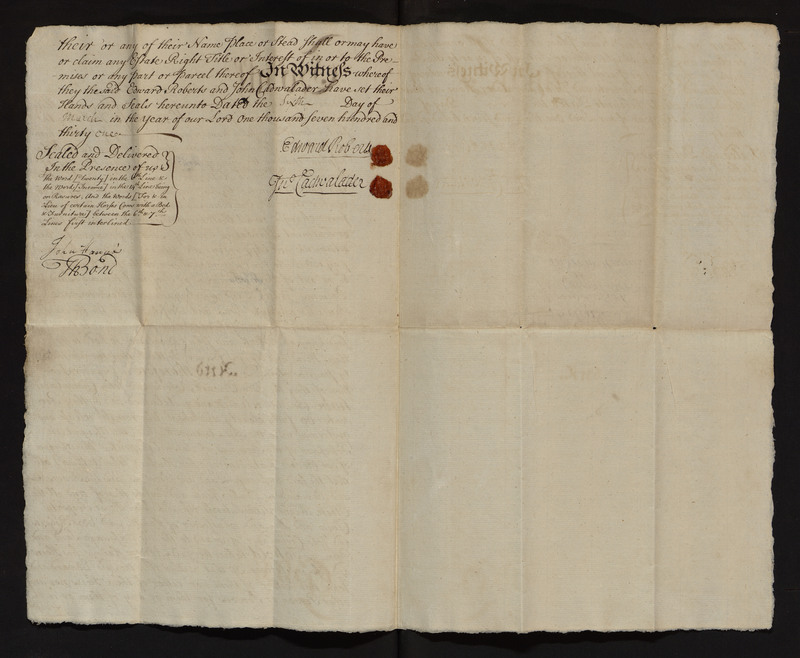 their or any of their Name Place or Stead Shall or may have
or claim any Estate Right Title or Interest of in or to the Pre-
-mises or any part or Parcel thereof In Witness whereof
they the said Edward Roberts and John Cadwalader have set their
Hands and Seals hereunto Dated the Sixth Day of
March in the Year of our Lord One thousand seven hundred and
thirty one
Edward Roberts
Jno Cadwalader
Sealed and Delivered
In the Presence of us
the Word [Twenty] in the Line &
the Word in the Line being
on Rasures, And the Words [For & in
Lieu of certain Houses
between the 6th & 7th
Lines first interlined
John
Bond